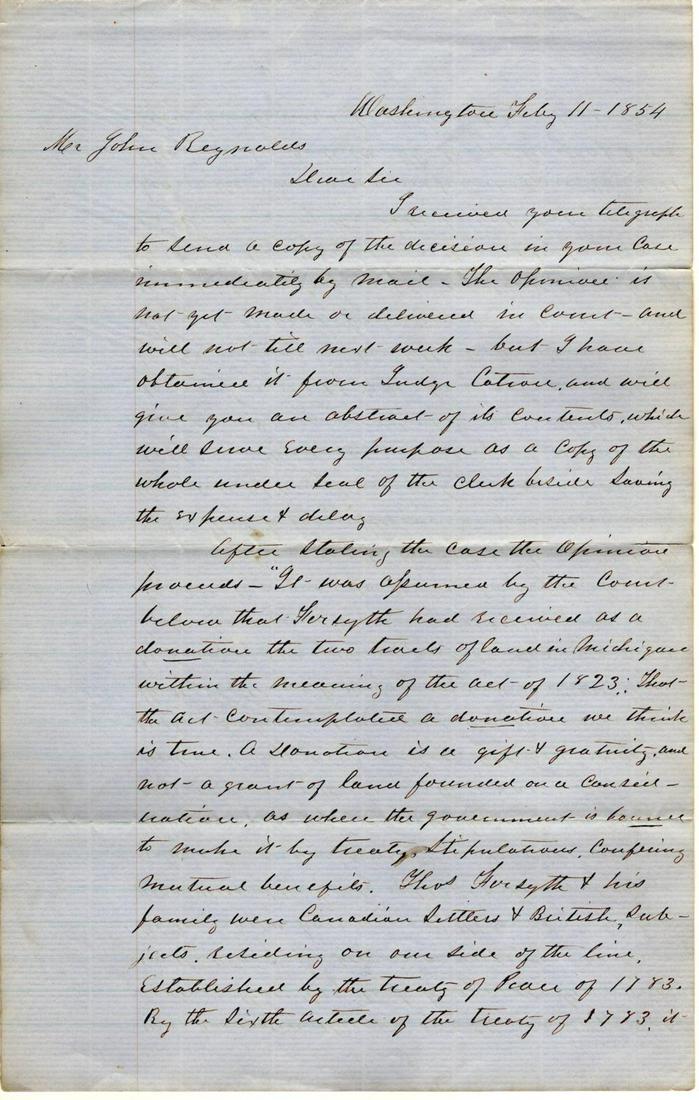 Washington Feby 11 - 1854
Mr John Reynolds
Dear Sir
I received your telegraph
to send a copy of the decision in your Case
immediately by mail - The Opinion is
not yet made or delivered in Court - and
will not till next week - but I have
obtained it from Judge Catron, and will
give you an abstract of its contents, which
will serve every purpose as a Copy of the
whole under Seal of the Clerk beside Saving
the expense & delay
After Stating the Case the Opinion
proceeds - "It was assumed by the Court
below that Forsyth had received as a
donation the two tracts of land in Michigan
within the meaning of the act of 1823; That
the act Contemplated a donation we think
is true. A Donation is a gift & gratuity, and
not a grant of land founded on a Consid-
eration, as where the government is bound
to make it by treaty Stipulations, Confering
mutual benefits. Thos Forsyth & his
family were Canadian Settlers & British Sub-
jects, residing on our side of the line,
Established by the treaty of Peace of 1783.
By the Sixth Article of the treaty of 1783, it